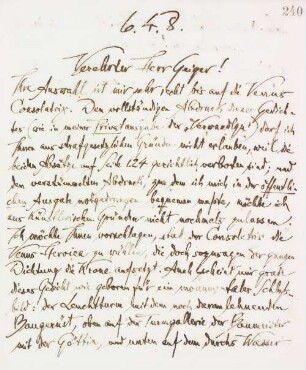 240
6.4.8.
Verehrter Herr Geiger!
Ihre Auswahl ist mir sehr recht bis auf die Venus
Consolatrix. Den vollständigen Abdruck dieses Gedich-
tes (wie in meiner Privatausgabe der „Verwandlgn") darf ich
Ihnen aus strafgesetzlichen Gründen nicht erlauben, weil die
beiden Absätze auf Seite 124 gerichtlich verboten sind; und
den verstümmelten Abdruck, zu dem ich mich in der öffentlichen
Ausgabe notgedrungen bequemen mußte, möchte ich
aus künstlerischen Gründen nicht nochmals zulassen.
Ich möchte Ihnen vorschlagen, statt der Consolatrix die
Venus Heroica zu wählen, die doch sozusagen der ganzen
Dichtung die Krone aufsetzt. Auch scheint mir grade
dieses Gedicht wie geboren für ein monumentales Schluß-
bild: der Leuchtturm mit dem noch daran lehnenden
Baugerüst, oben auf der Turmgallerie der Baumeister
mit der Göttin, und unten auf dem durchs Wasser